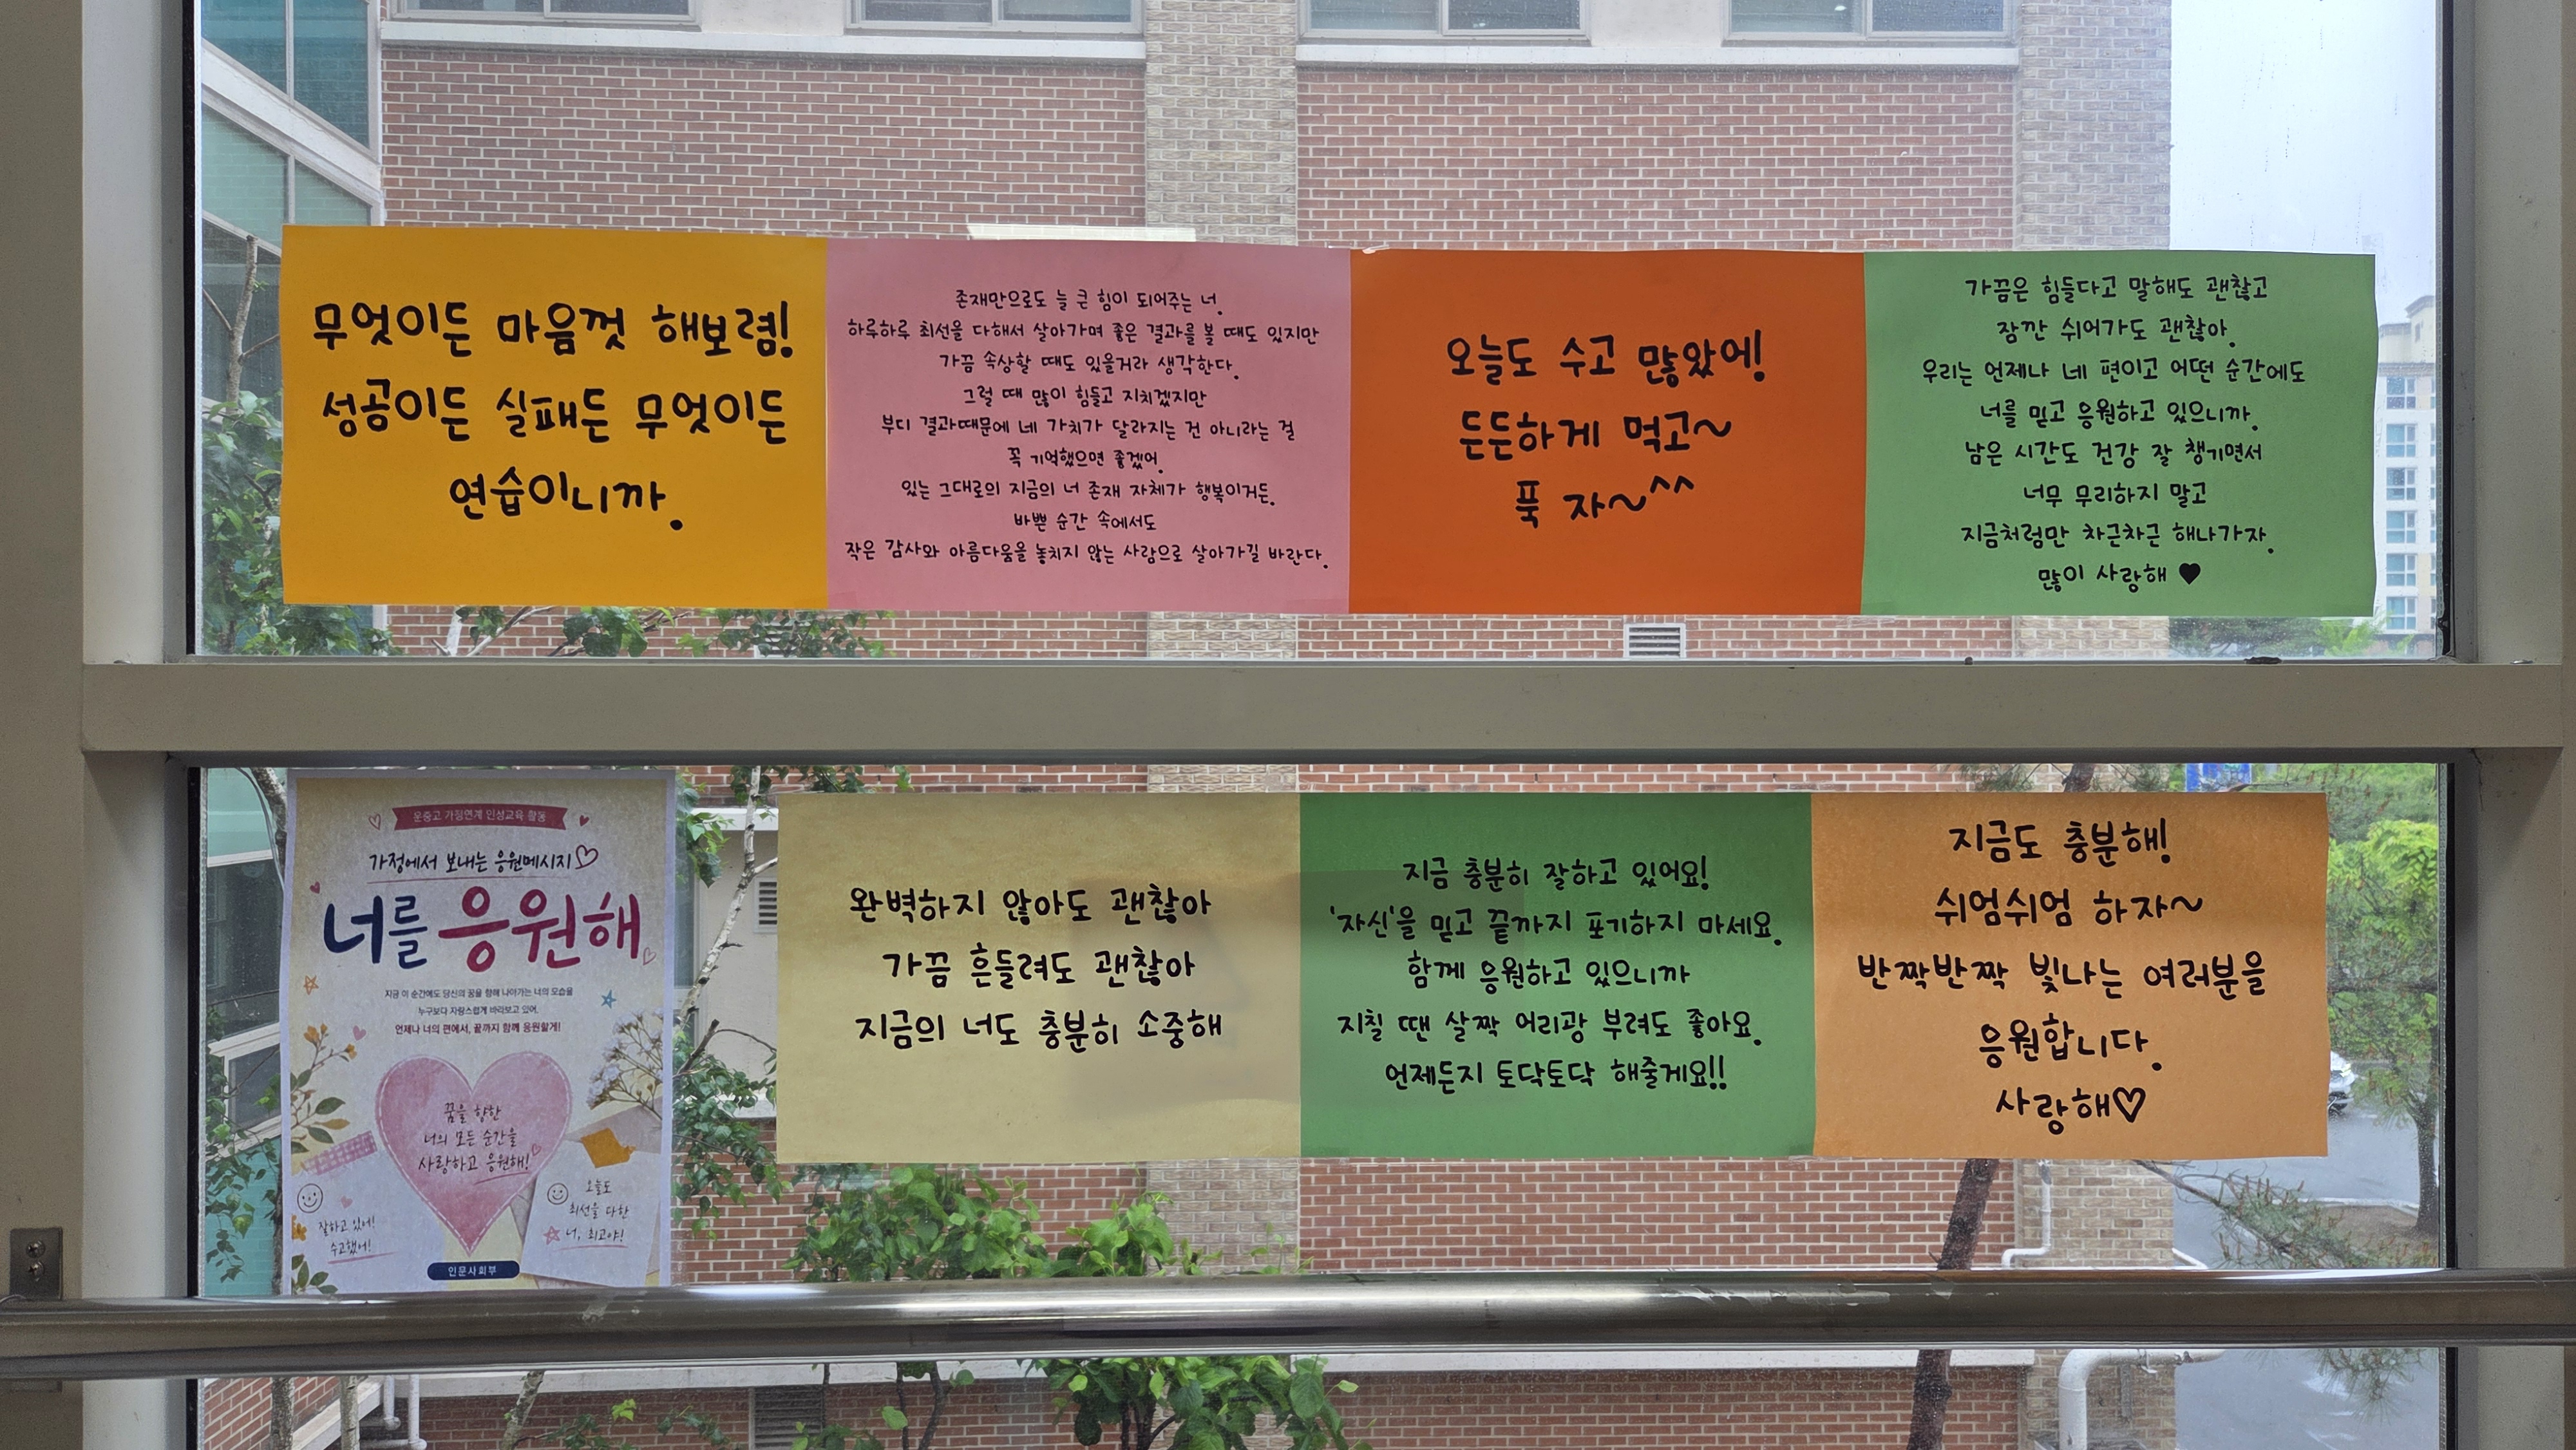 무엇이든 마음껏 해보렴!
성공이든 실패든 무엇이든
연습이니까.
존재만으로도 늘 큰 힘이 되어주는 너.
하루하루 최선을 다해서 살아가며 좋은 결과를 볼 때도 있지만
가끔 속상할 때도 있을거라 생각한다.
그럴 때 많이 힘들고 지치겠지만
부디 결과때문에 네 가치가 달라지는 건 아니라는 걸
꼭 기억했으면 좋겠어.
있는 그대로의 지금의 너 존재 자체가 행복이거든.
바쁜 순간 속에서도
작은 감사와 아름다움을 놓치지 않는 사람으로 살아가길 바란다.
오늘도 수고 많았어!
든든하게 먹고~
푹 자~^^
가끔은 힘들다고 말해도 괜찮고
잠깐 쉬어가도 괜찮아.
우리는 언제나 네 편이고 어떤 순간에도
너를 믿고 응원하고 있으니까.
남은 시간도 건강 잘 챙기면서
너무 무리하지 말고
지금처럼만 차근차근 해나가자.
많이 사랑해 ♥
운중고 가정연계 인성교육 활동
가정에서 보내는 응원메시지♡
너를 응원해
지금 이 순간에도 당신의 꿈을 향해 나아가는 너의 모습을
누구보다 자랑스럽게 바라보고 있어.
언제나 너의 편에서, 끝까지 함께 응원할게!
꿈을 향한
너의 모든 순간을
사랑하고 응원해!
잘하고 있어!
수고했어!
오늘도
최선을 다한
너, 최고야!
인문사회부
완벽하지 않아도 괜찮아
가끔 흔들려도 괜찮아
지금의 너도 충분히 소중해
지금 충분히 잘하고 있어요!
'자신'을 믿고 끝까지 포기하지 마세요.
함께 응원하고 있으니까
지칠 땐 살짝 어리광 부려도 좋아요.
언제든지 토닥토닥 해줄게요!!
지금도 충분해!
쉬엄쉬엄 하자~
반짝반짝 빛나는 여러분을
응원합니다.
사랑해♡